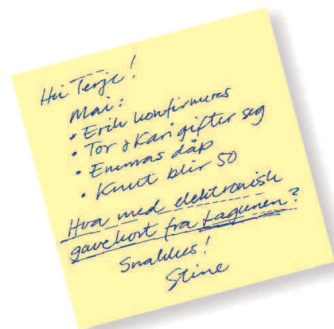 Hei Terje!
Mai:
• Erik konfirmeres
• Tor & Kari gifter seg
• Emmas dåp
• Knut blir 50
Hva med elektronisk
gavekort fra Lagunen?
Snakkes!
Stine